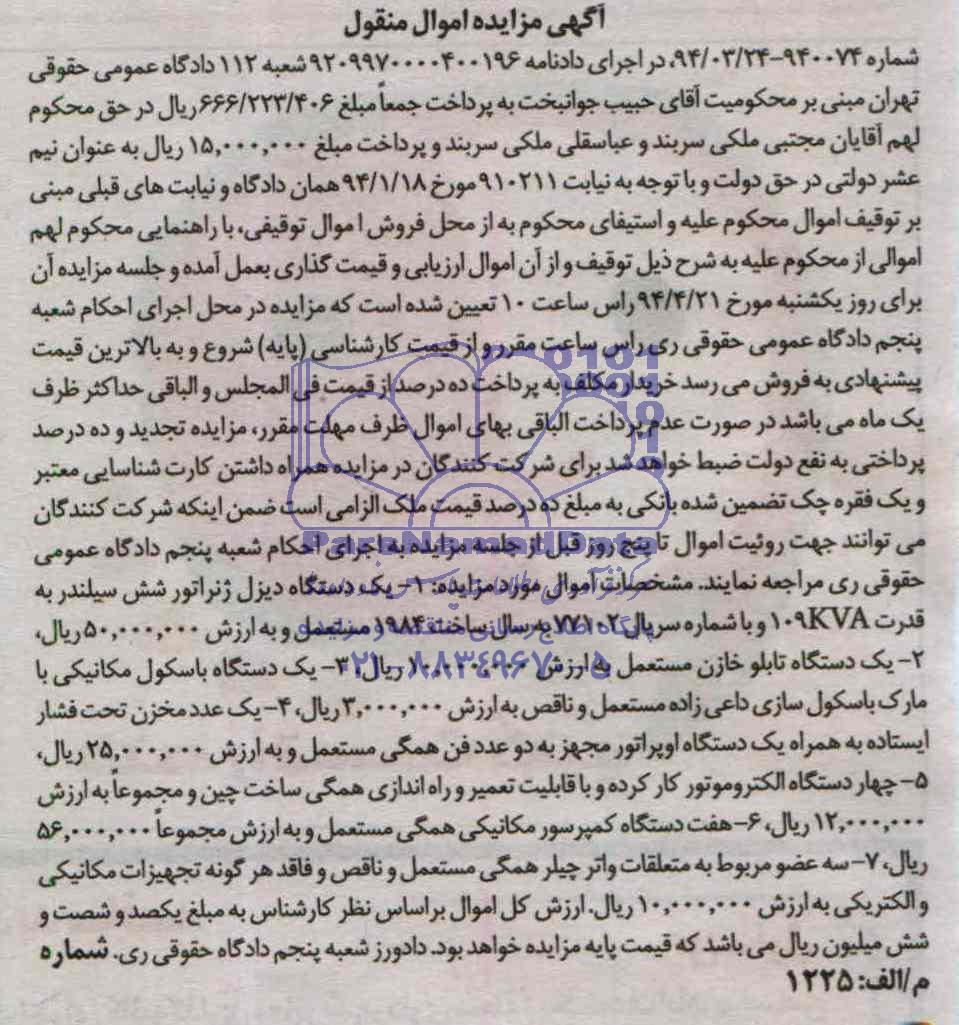 آگهی مزایده اموال منقول
شماره ۹۴۰۰۷۴-۹۴/۰۳/۲۴، در اجرای دادنامه ۹۲۰۹۹۷۰۰۰۰۴۰۰۱۹۶ شعبه ۱۱۲ دادگاه عمومی حقوقی
تهران مبنی بر محکومیت آقای حبیب جوانبخت به پرداخت جمعاً مبلغ ۶۶۶/۲۲۳/۴۰۶ ریال در حق محکوم
لهم آقایان مجتبی ملکی سربند و عباسقلی ملکی سربند و پرداخت مبلغ ۱۵,۰۰۰,۰۰۰ ریال به عنوان نیم
عشر دولتی در حق دولت و با توجه به نیابت ۹۱۰۲۱۱ مورخ ۹۴/۱/۱۸ همان دادگاه و نیابت های قبلی مبنی
بر توقیف اموال محکوم علیه و استیفای محکوم به از محل فروش ا موال توقیفی، با راهنمایی محکوم لهم
اموالی از محکوم علیه به شرح ذیل توقیف و از آن اموال ارزیابی و قیمت گذاری بعمل آمده و جلسه مزایده آن
برای روز یکشنبه مورخ ۹۴/۴/۲۱ راس ساعت ۱۰ تعیین شده است که مزایده در محل اجرای احکام شعبه
پنجم دادگاه عمومی حقوقی ری راس ساعت مقرر و از قیمت کارشناسی (پایه) شروع و به بالاترین قیمت
پیشنهادی به فروش می رسد خریدار مکلف به پرداخت ده درصد از قیمت فی المجلس و الباقی حداکثر ظرف
یک ماه می باشد در صورت عدم پرداخت الباقی بهای اموال ظرف مهلت مقرر، مزایده تجدید و ده درصد
پرداختی به نفع دولت ضبط خواهد شد برای شرکت کنندگان در مزایده همراه داشتن کارت شناسایی معتبر
و یک فقره چک تضمین شده بانکی به مبلغ ده درصد قیمت ملک الزامی است ضمن اینکه شرکت کنندگان
می توانند جهت روئیت اموال تا پنج روز قبل از جلسه مزایده به اجرای احکام شعبه پنجم دادگاه عمومی
حقوقی ری مراجعه نمایند. مشخصات اموال مورد مزایده: ۱- یک دستگاه دیزل ژنراتور شش سیلندر به
قدرت ۱۰۹KVA و با شماره سریال ۷۷۱۰۲ به سال ساخت ۱۹۸۴ مستعمل و به ارزش ۵۰,۰۰۰,۰۰۰ ریال،
۲- یک دستگاه تابلو خازن مستعمل به ارزش ۱۰,۰۰۰,۰۰۰ ریال، ۳- یک دستگاه باسکول مکانیکی با
مارک باسکول سازی داعی زاده مستعمل و ناقص به ارزش ۳,۰۰۰,۰۰۰ ریال، ۴- یک عدد مخزن تحت فشار
ایستاده به همراه یک دستگاه اوپراتور مجهز به دو عدد فن همگی مستعمل و به ارزش ۲۵,۰۰۰,۰۰۰ ریال،
۵- چهار دستگاه الکتروموتور کار کرده و با قابلیت تعمیر و راه اندازی همگی ساخت چین و مجموعاً به ارزش
۱۲,۰۰۰,۰۰۰ ریال، ۶- هفت دستگاه کمپرسور مکانیکی همگی مستعمل و به ارزش مجموعاً ۵۶,۰۰۰,۰۰۰
ریال، ۷- سه عضو مربوط به متعلقات واتر چیلر همگی مستعمل و ناقص و فاقد هر گونه تجهیزات مکانیکی
و الکتریکی به ارزش ۱۰,۰۰۰,۰۰۰ ریال. ارزش کل اموال براساس نظر کارشناس به مبلغ یکصد و شصت و
شش میلیون ریال می باشد که قیمت پایه مزایده خواهد بود. دادورز شعبه پنجم دادگاه حقوقی ری. شماره
م/الف: ۱۲۲۵
ParsNamadData
۰۲۱-۸۸۳۴۹۶۷۰-۵